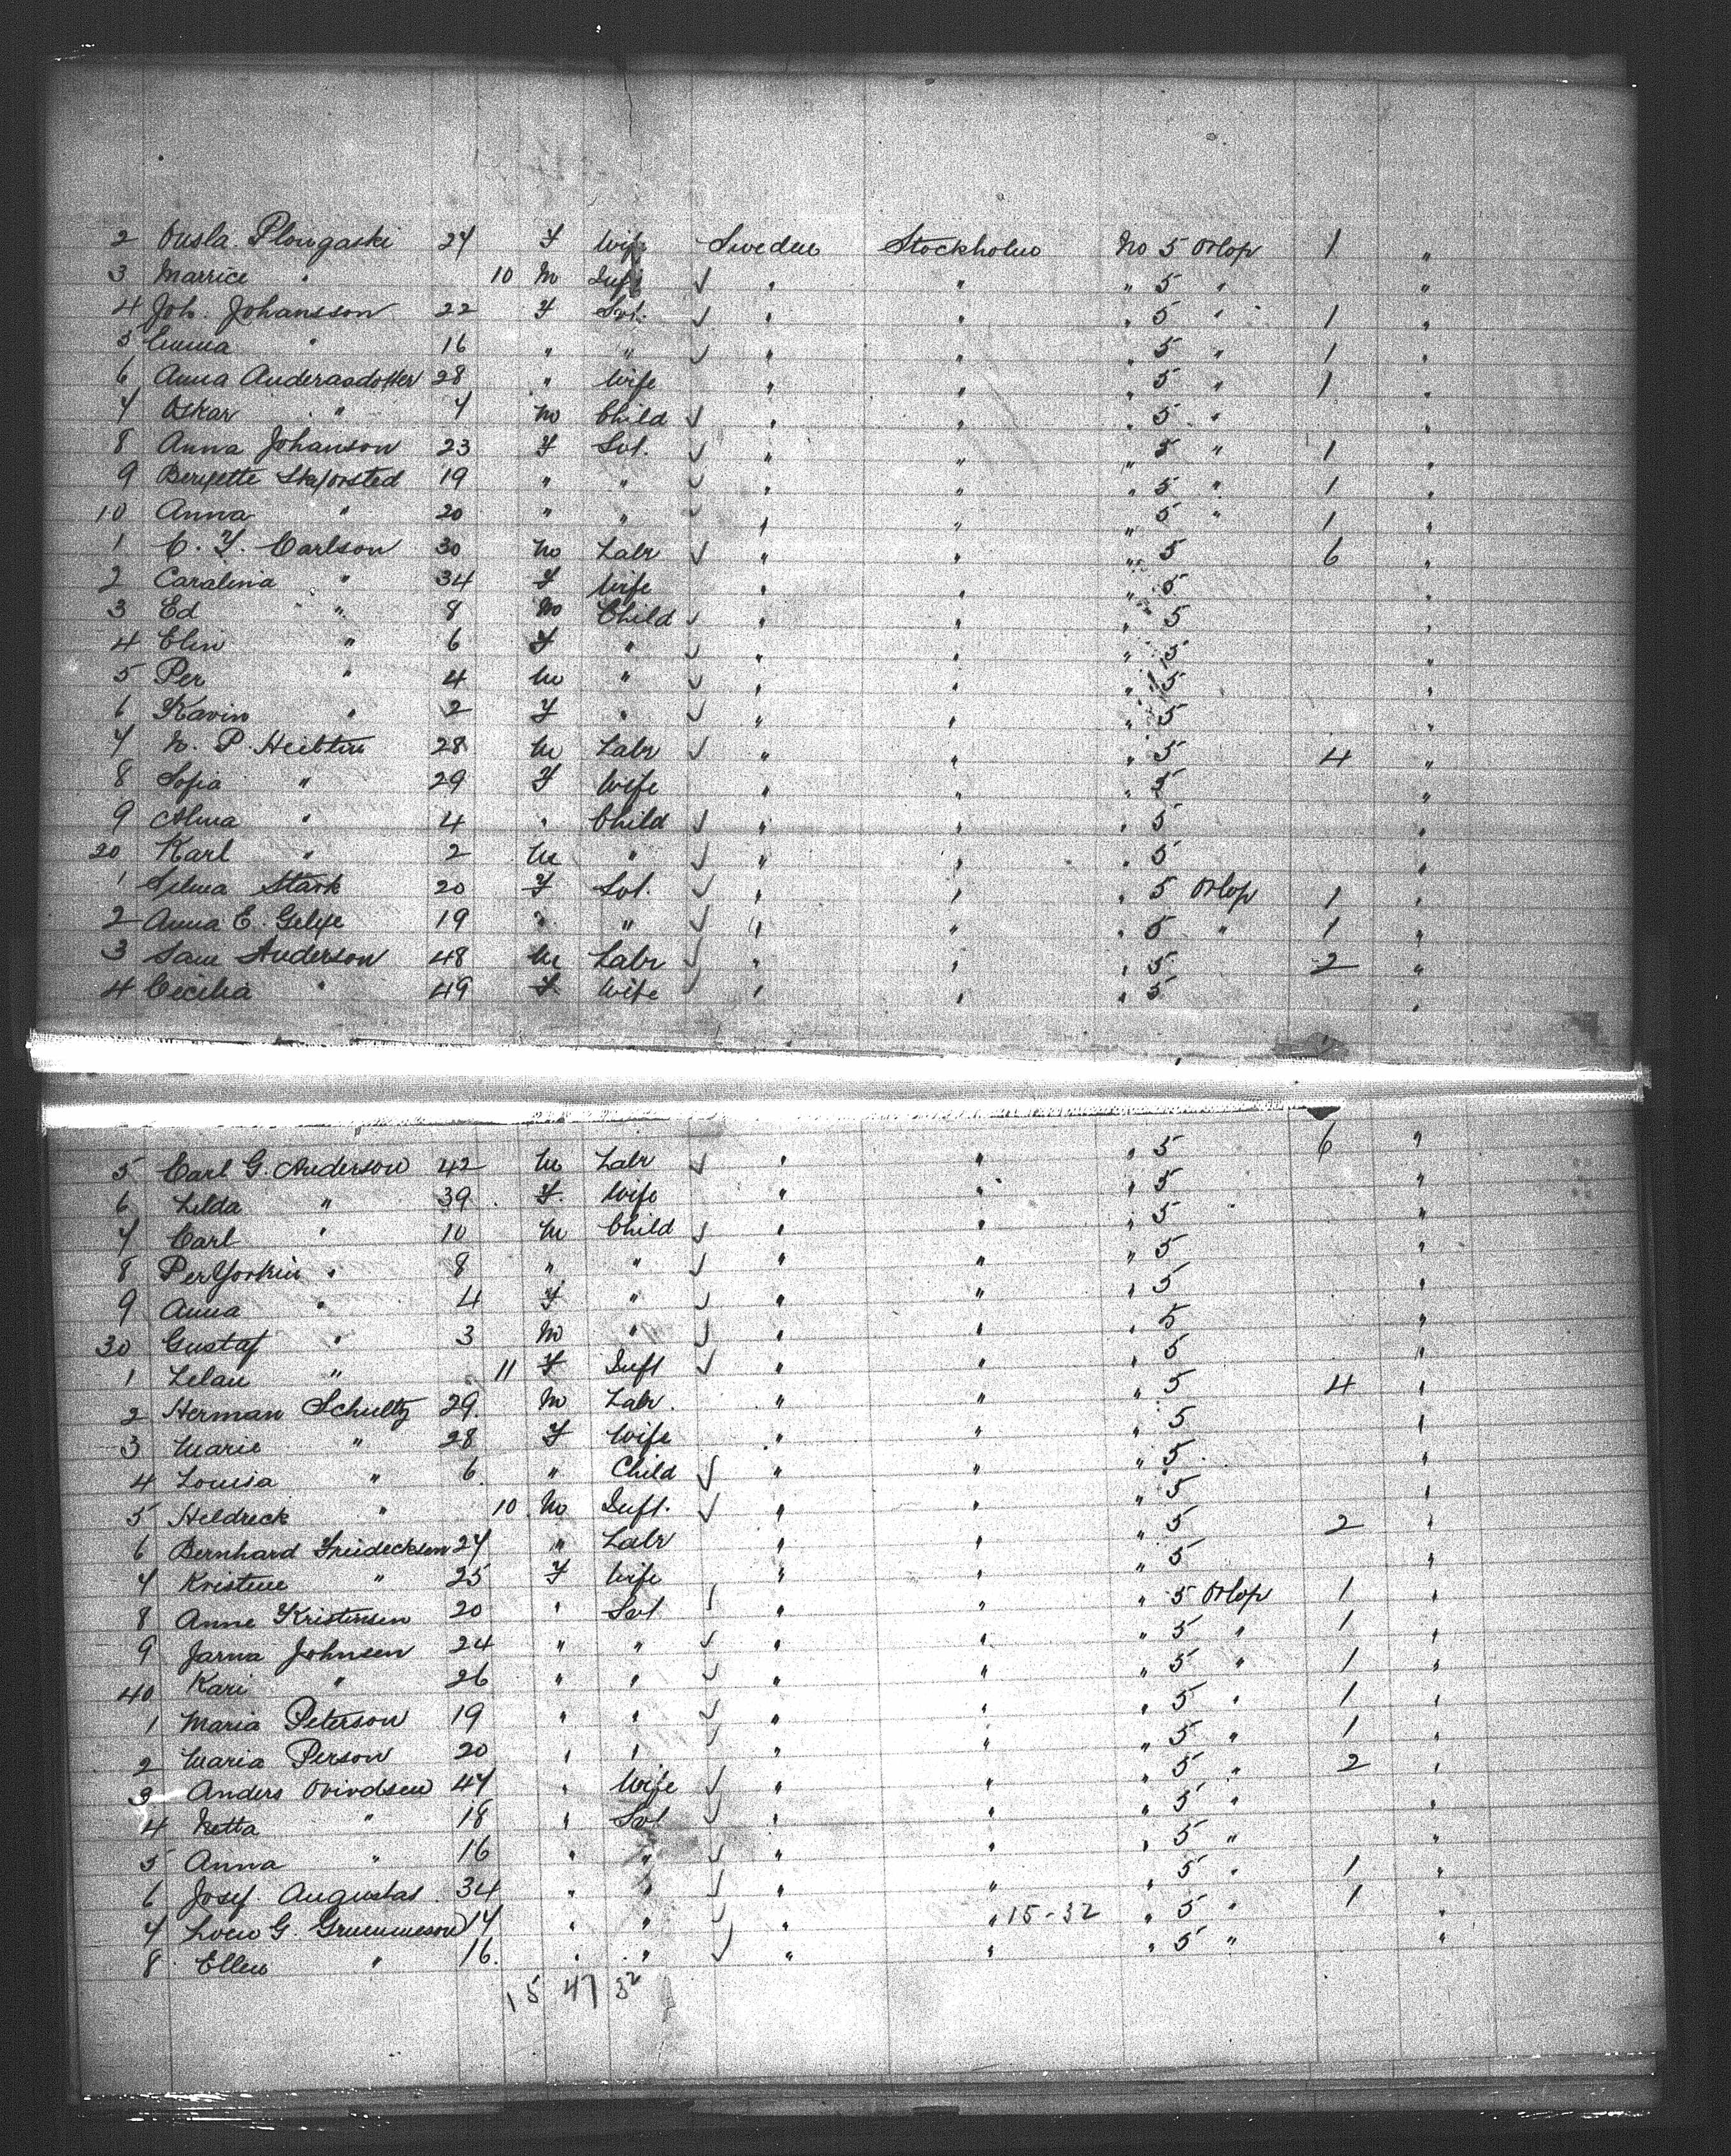 2 Ousla Plougaski 27 F Wife Sweden Stockholm No 5 Orlop 1 "
3 Marrice " 10 M Inft " " " 5 " "
4 Joh. Johansson 22 F Sol. " " " 5 " 1 "
5 Emma " 16 " " " " " 5 " 1 "
6 Anna Anderasdotter 28 " Wife " " " 5 " 1 "
7 Oskar " 7 M Child " " " 5 " "
8 Anna Johanson 23 F Sol. " " " 5 " 1 "
9 Beryette Skjorsted 19 " " " " " 5 " 1 "
10 Anna " 20 " " " " " 5 " 1 "
1 C. F. Carlson 30 M Labr " " " 5 6 "
2 Caralina " 34 F Wife " " " 5 "
3 Ed " 8 M Child " " " 5 "
4 Elin " 6 F " " " " 5 "
5 Per " 4 M " " " " 5 "
6 Karin " 2 F " " " " 5 "
7 N. P. 28 M Labr " " " 5 4 "
8 Sofia " 29 F Wife " " " 5 "
9 Alma " 4 " Child " " " 5 "
20 Karl " 2 M " " " " 5 "
1 Selma Stark 20 F Sol. " " " 5 Orlop 1 "
2 Anna E. 19 " " " " " 5 " 1 "
3 Sam Anderson 48 M Labr " " " 5 2 "
4 Cecilia " 49 F Wife " " " 5 "
5 Carl G. Anderson 42 M Labr " " " 5 6 "
6 Lilda " 39 F. Wife " " " 5 "
7 Carl " 10 M Child " " " 5 "
8 Per " 8 " " " " " 5 "
9 Anna " 4 F " " " " 5 "
30 Gustaf " 3 M " " " " 5 "
1 Lelan " 11 F Inft " " " 5 "
2 Herman Schultz 29. M Labr. " " " 5 4 "
3 Marie " 28 F Wife " " " 5 "
4 Louisa " 6. " Child " " " 5 "
5 Heldreck " 10 M Inft. " " " 5 "
6 Bernhard Freideckson 27 " Labr " " " 5 2 "
7 Kristine " 25 F Wife " " " 5 "
8 Anne Kristensen 20 " Sol " " " 5 Orlop 1 "
9 Jarna Johnsen 24 " " " " " 5 " 1 "
40 Kari " 26 " " " " " 5 " 1 "
1 Maria Peterson 19 " " " " " 5 " 1 "
2 Maria Person 20 " " " " " 5 " 1 "
3 Anders Oivodsen 47 " Wife " " " 5 " 2 "
4 Netta " 18 " Sol " " " 5 " "
5 Anna " 16 " " " " " 5 " "
6 Josef. Augustas 34 " " " " " 5 " 1 "
7 G. 17 " " " " 15-32 " 5 " 1 "
8 Ellen " 16. " " " " " 5 " "
15 47 32